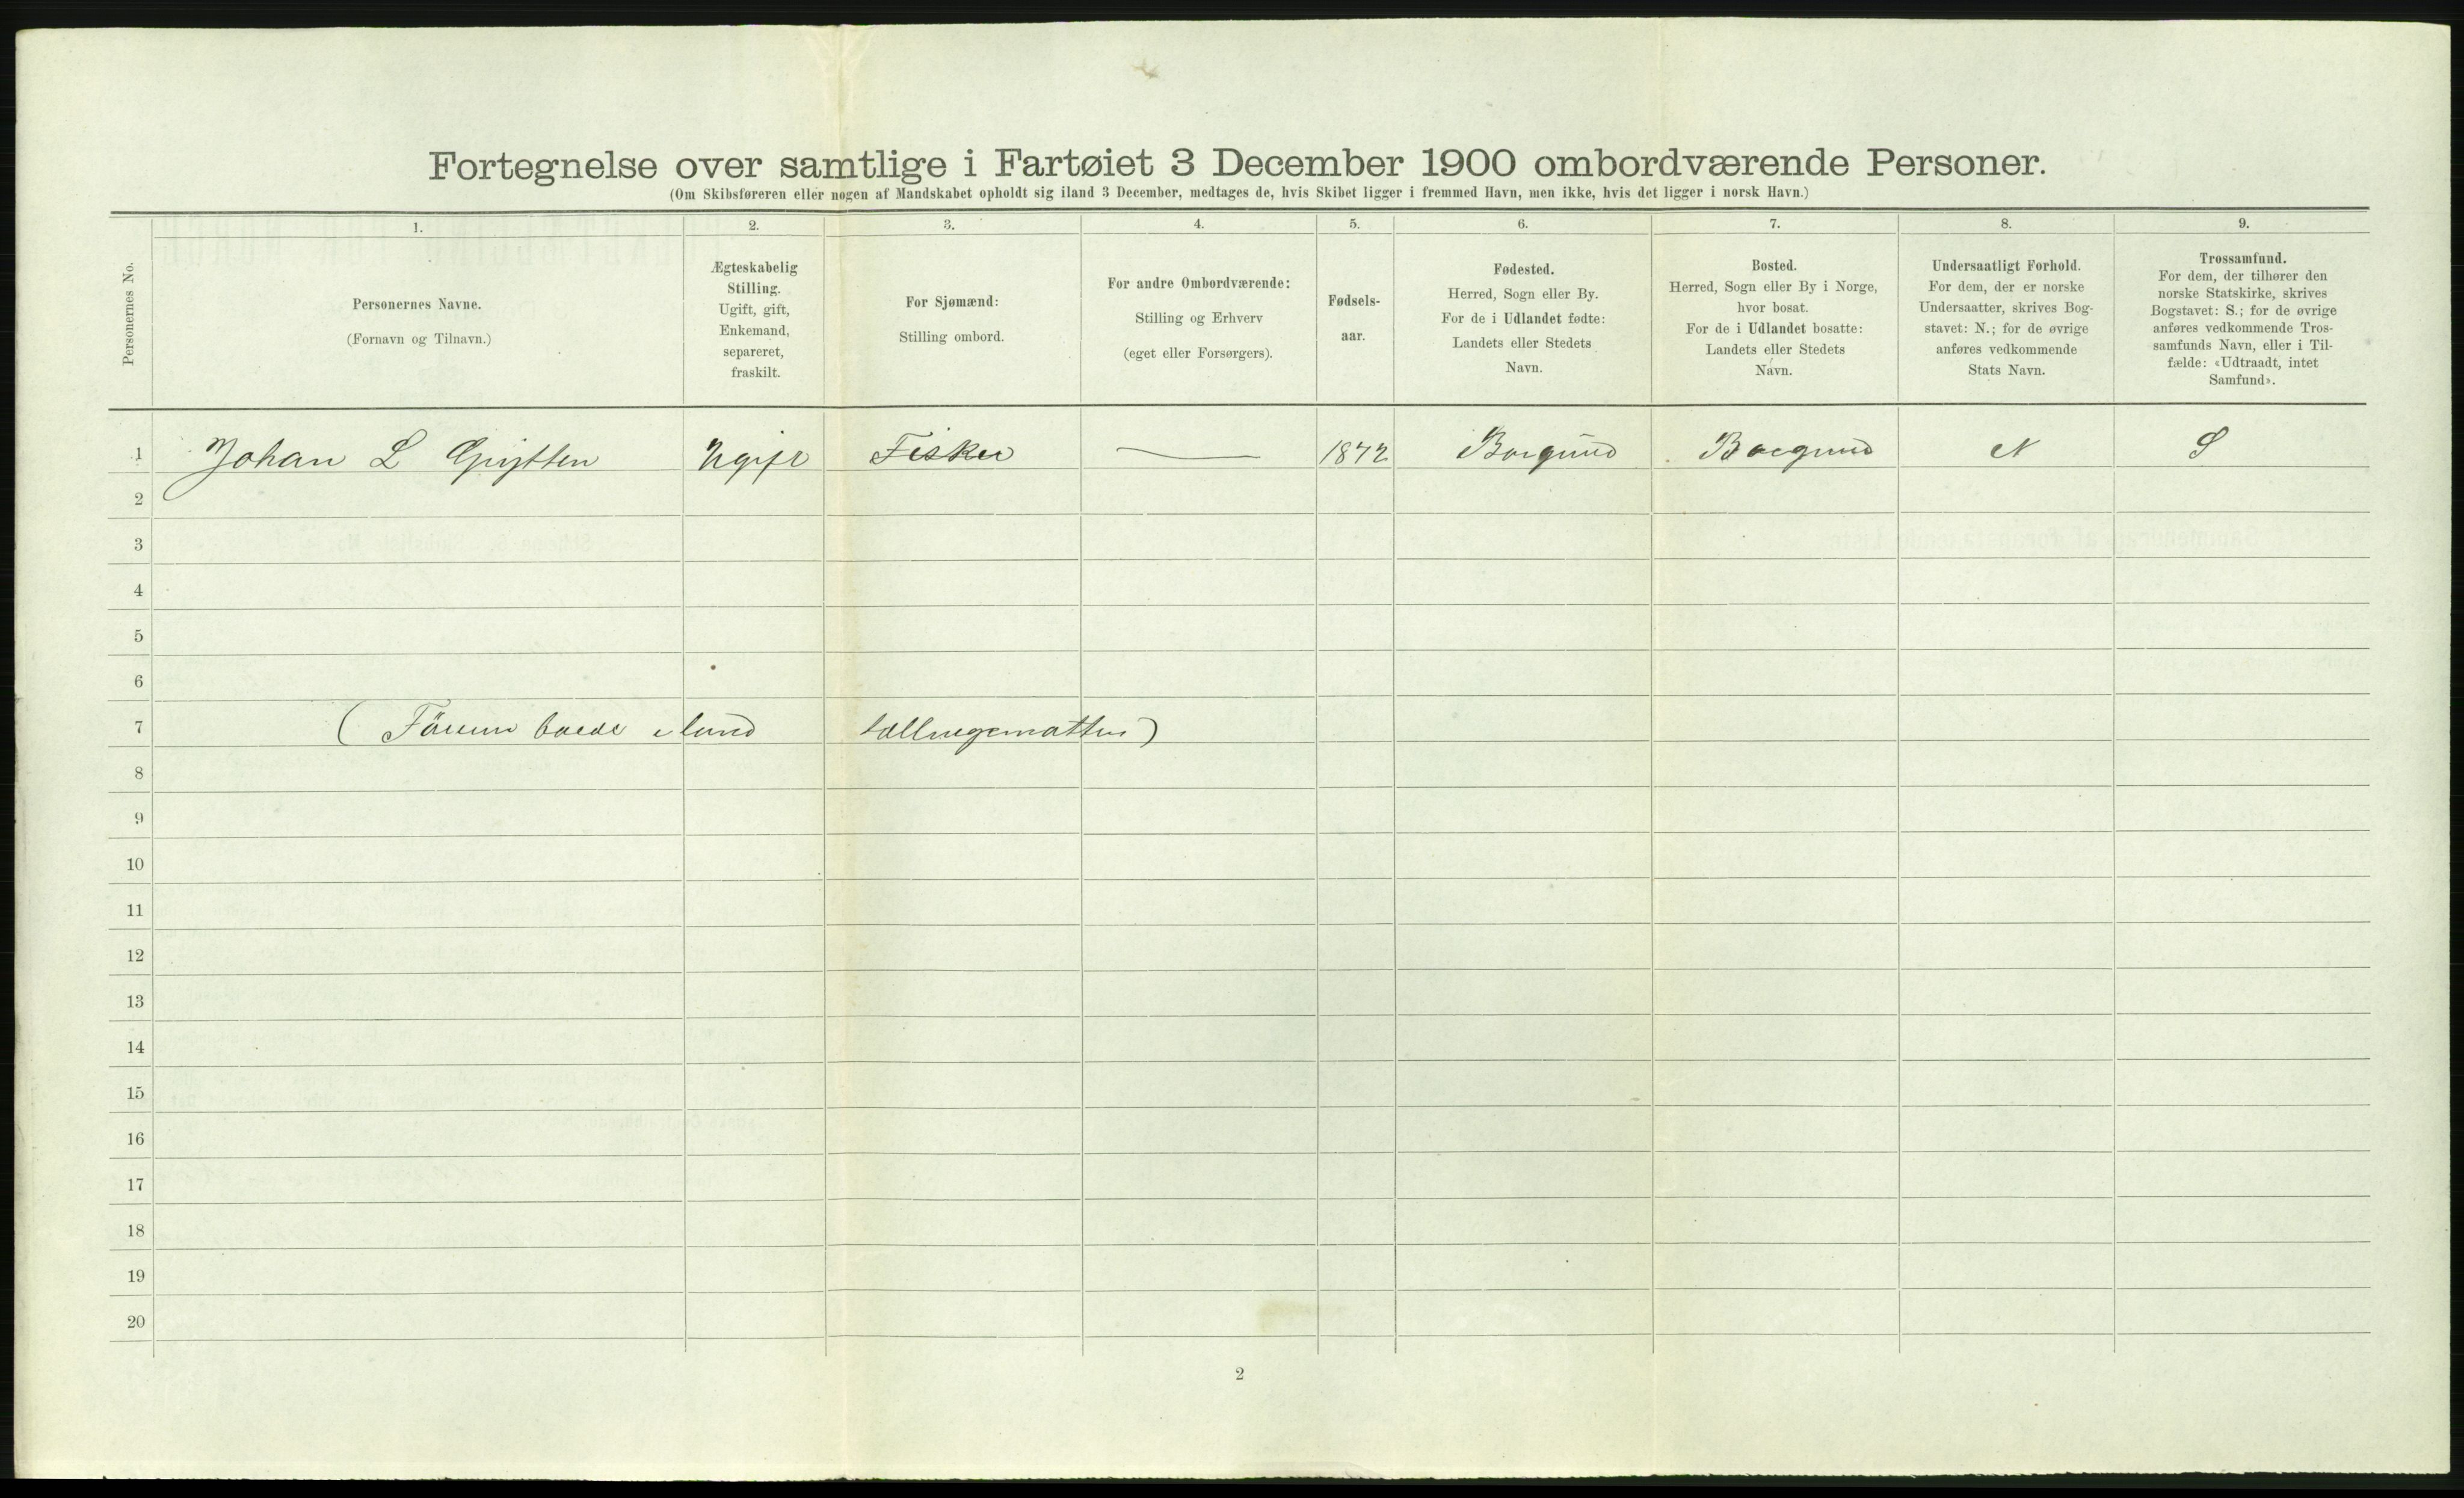 Fortegnelse over samtlige i Fartøiet 3 December 1900 ombordværende Personer.
(Om Skibsføreren eller nogen af Mandskabet opholdt sig iland 3 December, medtages de, hvis Skibet ligger i fremmed Havn, men ikke, hvis det ligger i norsk Havn.)
Personernes No.
1. 2. 3. 4. 5. 6. 7. 8. 9.
Personernes Navne.
(Fornavn og Tilnavn.)
Ægteskabelig
Stilling.
Ugift, gift,
Enkemand,
separeret,
fraskilt.
For Sjømænd:
Stilling ombord.
For andre Ombordværende:
Stilling og Erhverv
(eget eller Forsørgers).
Fødsels-
aar.
Fødested.
Herred, Sogn eller By.
For de i Udlandet fødte:
Landets eller Stedets
Navn.
Bosted.
Herred, Sogn eller By i Norge,
hvor bosat.
For de i Udlandet bosatte:
Landets eller Stedets
Navn.
Undersaatligt Forhold.
For dem, der er norske
Undersaatter, skrives Bog-
stavet: N.; for de øvrige
anføres vedkommende
Stats Navn.
Trossamfund.
For dem, der tilhører den
norske Statskirke, skrives
Bogstavet: S.; for de øvrige
anføres vedkommende Tros-
samfunds Navn, eller i Til-
fælde: «Udtraadt, intet
Samfund».
1 Johan L Ugift Fisker 1872 Borgund Borgund N S
2
3
4
5
6
7 (Føreren boede i land tællingsnatten)
8
9
10
11
12
13
14
15
16
17
18
19
20
2